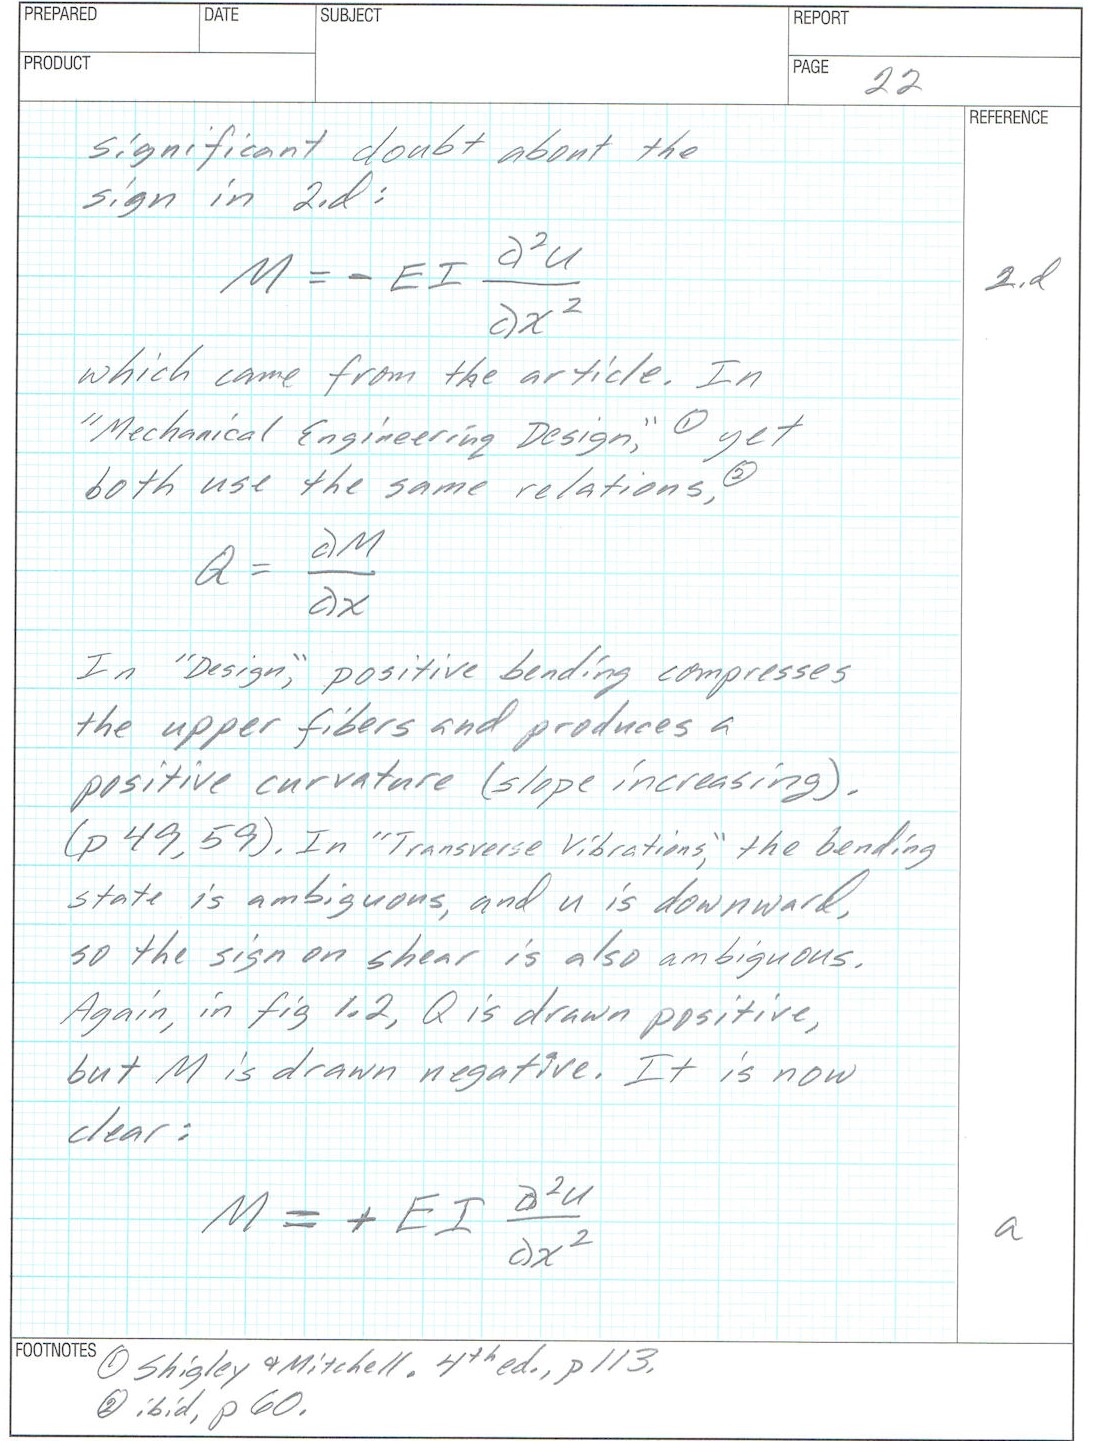 PREPARED
DATE
SUBJECT
REPORT
PRODUCT
PAGE 22
REFERENCE
significant doubt about the
sign in 2.d:
M = - EI ∂²u/∂x² 2.d
which came from the article. In
"Mechanical Engineering Design," ① yet
both use the same relations, ②
Q = ∂M/∂x
In "Design," positive bending compresses
the upper fibers and produces a
positive curvature (slope increasing).
(p 49, 59). In "Transverse Vibrations," the bending
state is ambiguous, and u is downward,
so the sign on shear is also ambiguous.
Again, in fig 1.2, Q is drawn positive,
but M is drawn negative. It is now
clear:
M = + EI ∂²u/∂x² a
FOOTNOTES ① Shigley & Mitchell. 4th ed., p 113.
② ibid, p 60.